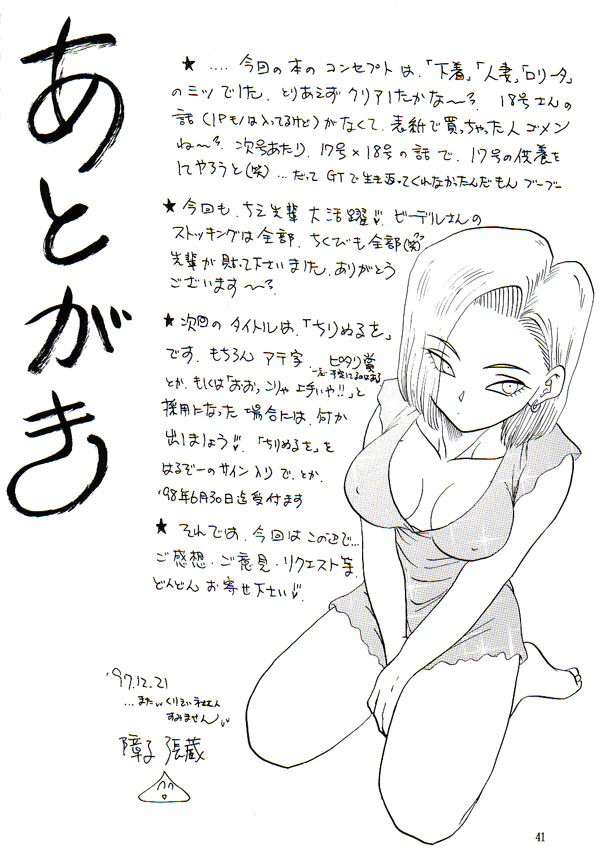 あとがき
★ ....今回の本のコンセプトは、「下着」「人妻」「ロリータ」
の三ツでした。とりあえずクリアしたかな〜?。18号さんの
話(1Pモノは入ってるけど)がなくて、表紙で買っちゃった人ゴメン
ね〜?。次号あたり、17号×18号の話で、17号の供養を
してやろうと(笑)...だってGTで生き返ってくれなかったんだもんブーブー
★今回も、ちえ先輩大活躍。ビーデルさんの
ストッキングは全部、ちくびも全部(笑)
先輩が貼って下さいました。ありがとう
ございます〜?。
★次回のタイトルは、「ちりぬるを」
です。もちろんアテ字。ピタリ賞
とか、もしくは「おおっこりゃ上手いや!!」と
採用になった場合には、何か
出しましょう。「ちりぬるを」を
はるぞーのサイン入りで、とか。
'98年6月30日迄受付ます
★それでは、今回はこの辺で...
ご感想・ご意見・リクエスト等、
どんどんお寄せ下さい。
'97.12.21
...また
すみません
障子 張蔵
41